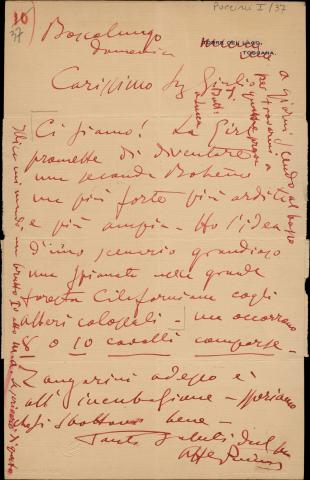 Puccini I/37
10
37
TORRE DEL LAGO,
TOSCANA.
Boscolungo
Domenica
Carissimo Sig Giulio
Ci siamo! La Girl
promette di diventare
una seconda Bohème
ma più forte più ardita
e più ampia - Ho l'idea
d'uno scenario grandioso
una spianata nella grande
foresta Californiana cogli
alberi colossali - ma occorrono
8 o 10 cavalli comparse -
Zangarini adesso è
all'incubazione - speriamo
sbottoni bene -
Tanti saluti dal suo
aff Puccini
a giorni scendo al basso
per
Illica mi manda un brutto IV atto